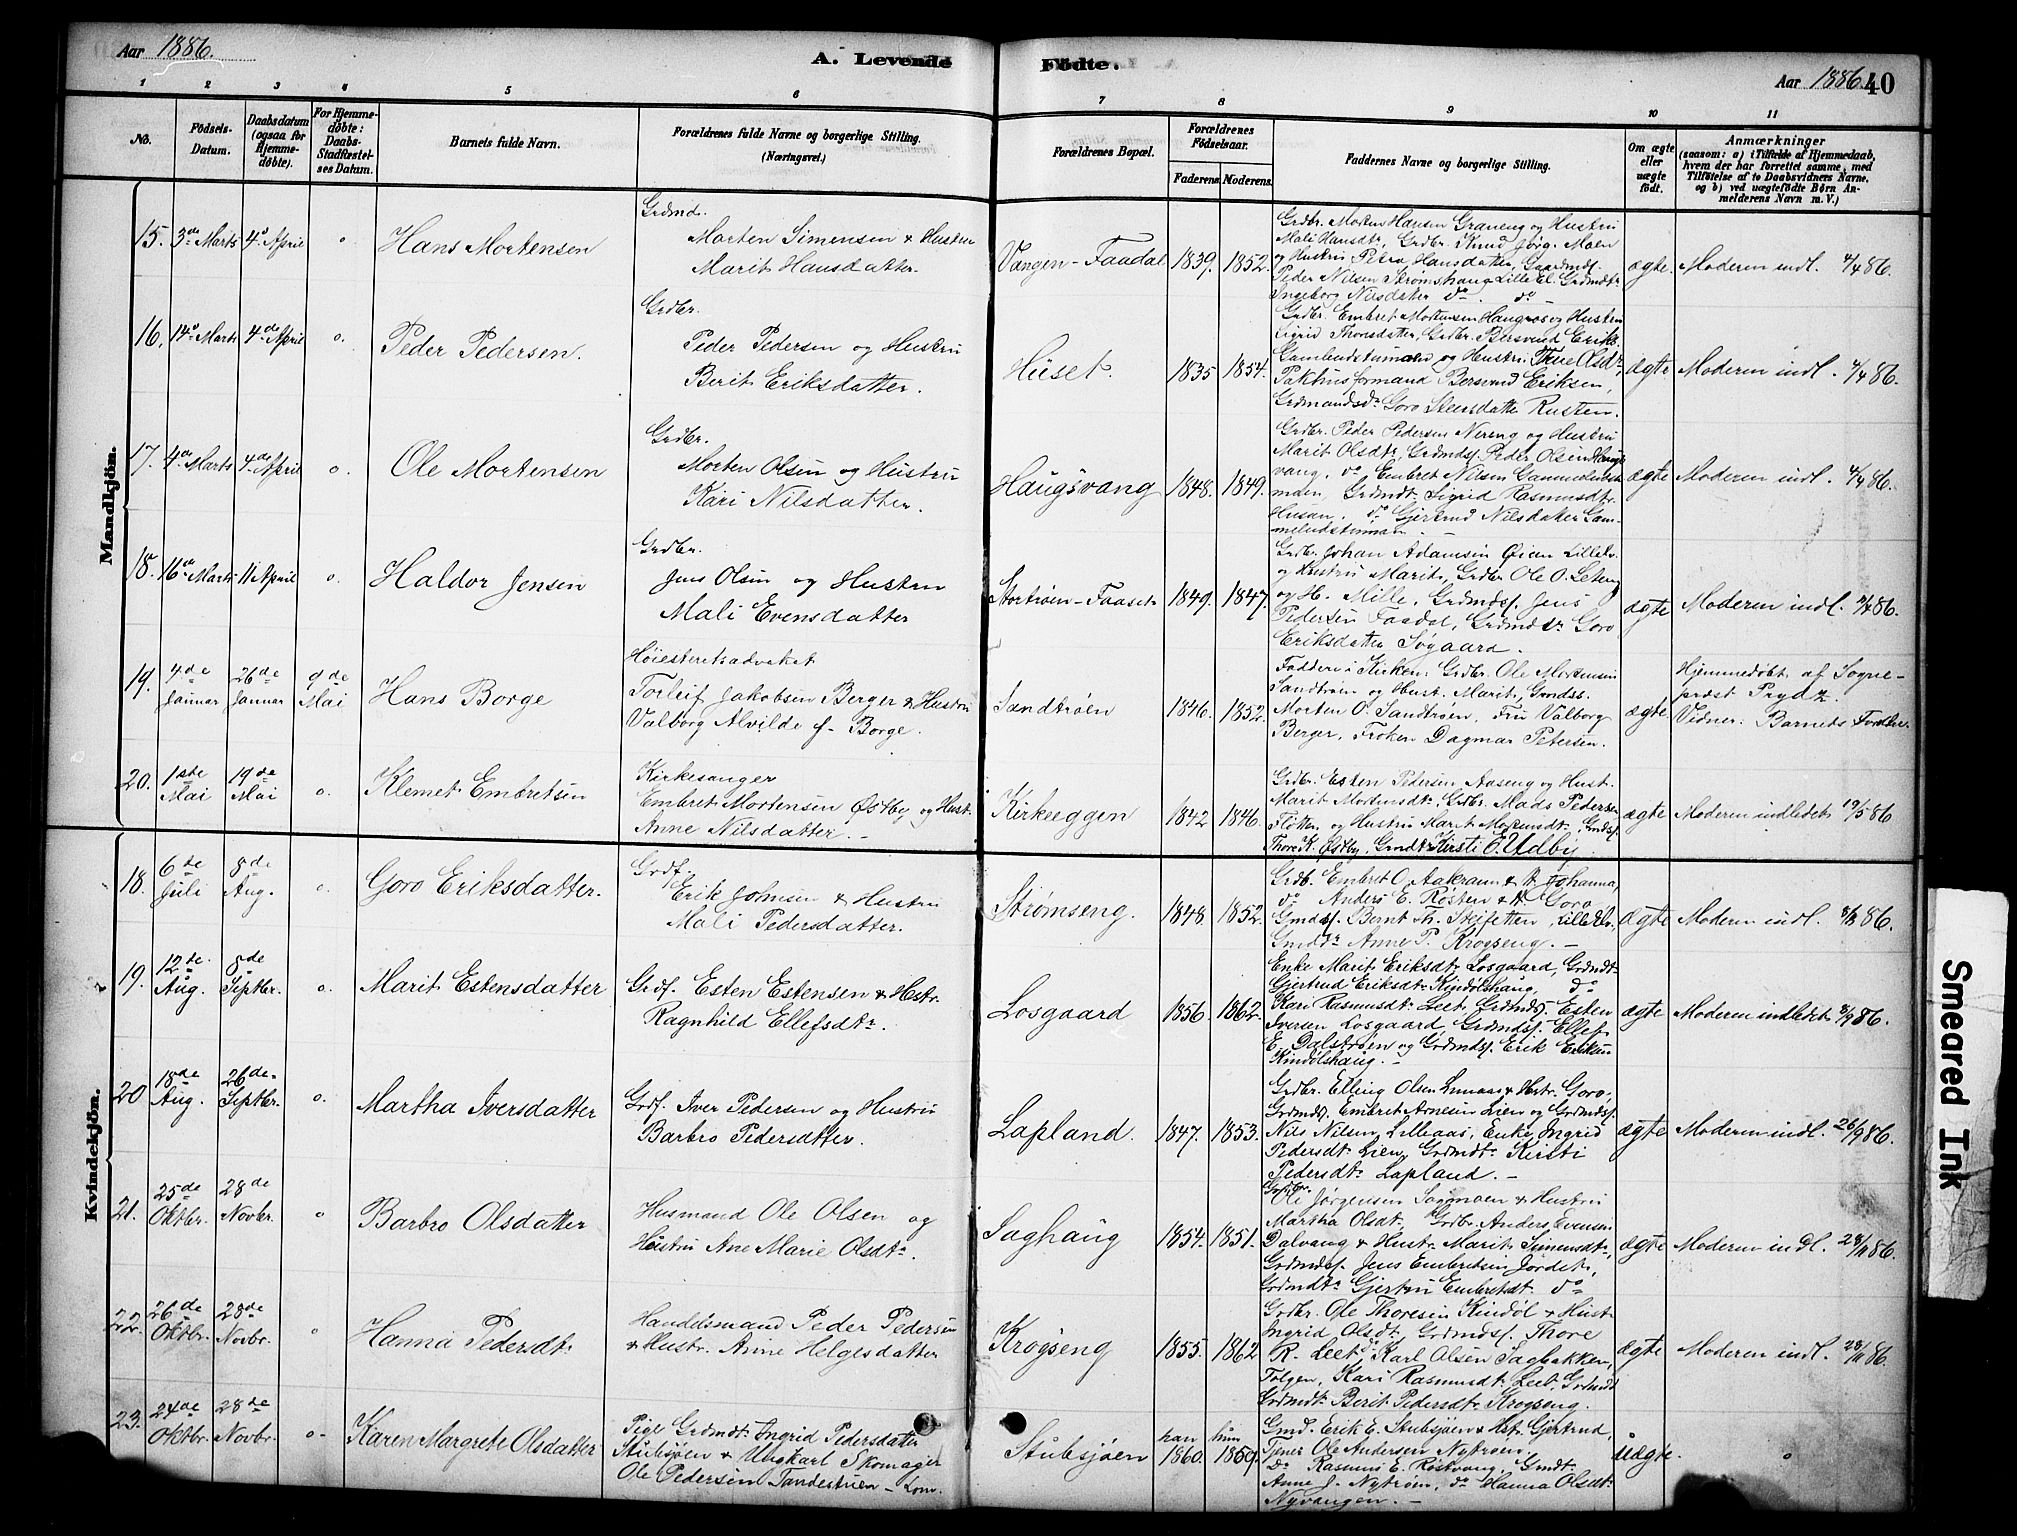 Aar 1886.
A. Levende Fødte.
Aar 1886. 40
1 2 3 4 5 6 7 8 9 10 11
No.
Fødsels-
Datum.
Daabsdatum
(ogsaa for
Hjemme-
døbte).
For Hjemme-
døbte:
Daabs-
Stadfæstel-
ses Datum.
Barnets fulde Navn.
Forældrenes fulde Navne og borgerlige Stilling.
(Næringsvei.)
Forældrenes Bopæl.
Forældrenes
Fødselsaar.
Faderens. Moderens.
Faddernes Navne og borgerlige Stilling.
Om ægte
eller
uægte
født.
Anmærkninger
(saasom: a) i Tilfælde af Hjemmedaab,
hvem der har forrettet samme, med
Tilføielse af to Daabsvidners Navne,
og b) ved uægtefødte Børn An-
melderens Navn m. V.)
Mandkjøn.
15. 3de Marts 4de April o Hans Mortensen
Grdmd.
Morten Simensen & Hustru
Marit Hansdatter.
Vangen-Faadal 1839. 1852.
Grdbr. Morten Hansen Graneng og Hustru
Mali Hansdtr, Grdbr. Knud Jørg. Moen
og Hustru Petra Hansdatter, Gaardmds.
Peder Nilsen Strømshaug Lille El. Grdmdtr
Ingeborg Nilsdatter do. do
ægte. Moderen indl. 4/4 86.
16. 14de Marts 4de April o. Peder Pedersen.
Grdbr.
Peder Pedersen og Hustru
Berit Eriksdatter.
Huset. 1835 1854.
Grdbr. Embret Mortensen Haugros og Hustru
Sigrid Thoresdatter, Grdbr. Bersvend Eriks.
Gamleudstumoen og Hustru Thrie Olsdtr,
Pakhusformand Bersvend Eriksen,
Grdmandsdr Goro Steersdatter Rusten.
ægte Moderen indl. 4/4 86.
17. 4de Marts 4de April o. Ole Mortensen
Grdbr.
Morten Olsen og Hustru
Kari Nilsdatter.
Haugsvang 1848. 1849.
Grdbr. Peder Pedersen Nereng og Hustru
Marit Olsdtr, Grdmdsf. Peder Olsen Haugs-
vang, do Embret Nilsen Gammeludst-
moen, Grdmdtr Sigrid Rasmusdtr
Husan, do Gjertrud Nilsdatter Gam-
meludstumoen.
ægte Moderen indl. 4/4 86.
18. 16de Marts 11 April o. Haldor Jensen
Grdbr.
Jens Olsen og Hustru
Mali Evensdatter
Stortrøen-Faaset 1849. 1847.
Grdbr. Johan Adamsen Øien Lilleelv.
og Hustru Marit, Grdbr Ole O. Leteng
og H. Mille, Grdmdsf. Jens
Pedersen Faadal, Grdmdsdr Goro
Eriksdatter Søgaard.
ægte Moderen indl. 11/4 86.
19. 4de Januar 26de Januar 9de Mai Hans Borge
Høiesteretsadvokat
Torleif Jakobsen Berger & Hustru
Valborg Alvilde f. Borge.
Sandtrøen 1846. 1852.
Faddere i Kirken: Grdbr. Ole Mortensen
Sandtrøen og Hust. Marit, Grmdss.
Morten O. Sandtrøen, Fru Valborg
Berger, Frøken Dagmar Petersen.
ægte Hjemmedøbt af Sogne-
præst Prydz.
Vidner: Barnets Forældre.
20. 1ste Mai 19de Mai o. Klemet Embretsen
Kirkesanger
Embret Mortensen Østby og Hust.
Anne Nilsdatter.
Kirkeeggen 1842 1846.
Grdbr. Esten Pedersen Aaseng og Hust.
Marit Mortensdt., Grdbr. Mads Pedersen
Fløtten og Hustru Marit Mortensdt., Grmdsf
Thore K. Østby, Grmdtr Kirsti E. Udby
ægte Moderen indledet 19/5 86
Kvindekjøn.
18. 6de Juli 8de Aug. o. Goro Eriksdatter.
Grdf.
Erik Johnsen & Hustru
Mali Pedersdatter.
Strømseng. 1848. 1852.
Grdb. Embret O. Aakraun & H. Johanna,
do Anders E. Røsten & H. Goro
Gmdsf. Bernt Th. Stejfetten, Lilleelv.
Gmdtr Anne P. Krogseng.
ægte Moderen indl. 8/8 86.
19. 12de Aug. 8de Septbr. o. Marit Estensdatter
Grdf. Esten Estensen & Hstr.
Ragnhild Ellefsdtr.
Losgaard 1856. 1862.
Enke Marit Eriksdtr Losgaard, Grdmdtr
Gjertrud Eriksdtr Kindølshaug, do
Kari Rasmusdtr Leet, Grdmdsf. Esten
Iversen Losgaard, Grdmdsf. Ellef
E. Dalstrøen og Grdmdsf. Erik Eriksen
Kindølshaug.
ægte Moderen indledet 8/9 86.
20 18de Aug. 26de Septbr. o. Martha Iversdatter
Grdf. Iver Pedersen og Hustru
Barbro Pedersdatter.
Lapland. 1847. 1853.
Grdbr. Elling Olsen & Hstr. Goro,
Grdmdsf. Embret Arnesen Lien og Grdmdsf.
Nils Nilsen Lilleaas, Enke Ingrid
Pedersdt. Lien, Grdmdtr Kirsti
Pedersdt. Lapland.
ægte Moderen indl. 26/9 86.
21. 25de Oktbr. 28de Novbr. o Barbro Olsdatter
Husmand Ole Olsen og
Hustru Ane Marie Olsdtr.
Saghaug 1854. 1851.
Grdbr.
Ole Jørgensen Sagmoen & Hustru
Martha Olsdt., Grdbr. Anders Evensen
Dalvang & Hustr. Marit Simensdtr,
Grdmdsf. Jens Embretsen Jordet,
Grdmdtr Gjertru Embretsdt. do
ægte Moderen indl. 28/11 86.
22. 26de Oktbr. 28de Novbr. o Hanna Pedersdt.
Handelsmand Peder Pedersen
& Hustr. Anne Helgesdatter
Krogseng 1855. 1862
Grdbr. Ole Thoresen Kindøl & Hust.
Ingrid Olsdt., Grdmdsf. Thore
R. Leet, do Karl Olsen Sagbakken,
Tolgen, Kari Rasmusdt. Leet, Grdmdt
Grdmdt. Berit Pedersdtr Krogseng.
ægte Moderen indl. 28/11 86.
23. 24de Oktbr. 28de Novbr. o Karen Margrete Olsdatter
Pige Grdmdt. Ingrid Pedersdatter
Stubsjøen & Ungkarl Skomager
Ole Pedersen Tandestuen -
Stubsjøen han 1860. hun 1859.
Gmd. Erik E. Stubsjøen & Hst. Gjertrud,
Tjener Ole Andersen Nytrøen,
do Rasmus E. Røstvang, Gmdt.
Anne J. Nytrøen, do Hanna Olsdt.
Nyvangen.
uægte. o
Smeared Ink